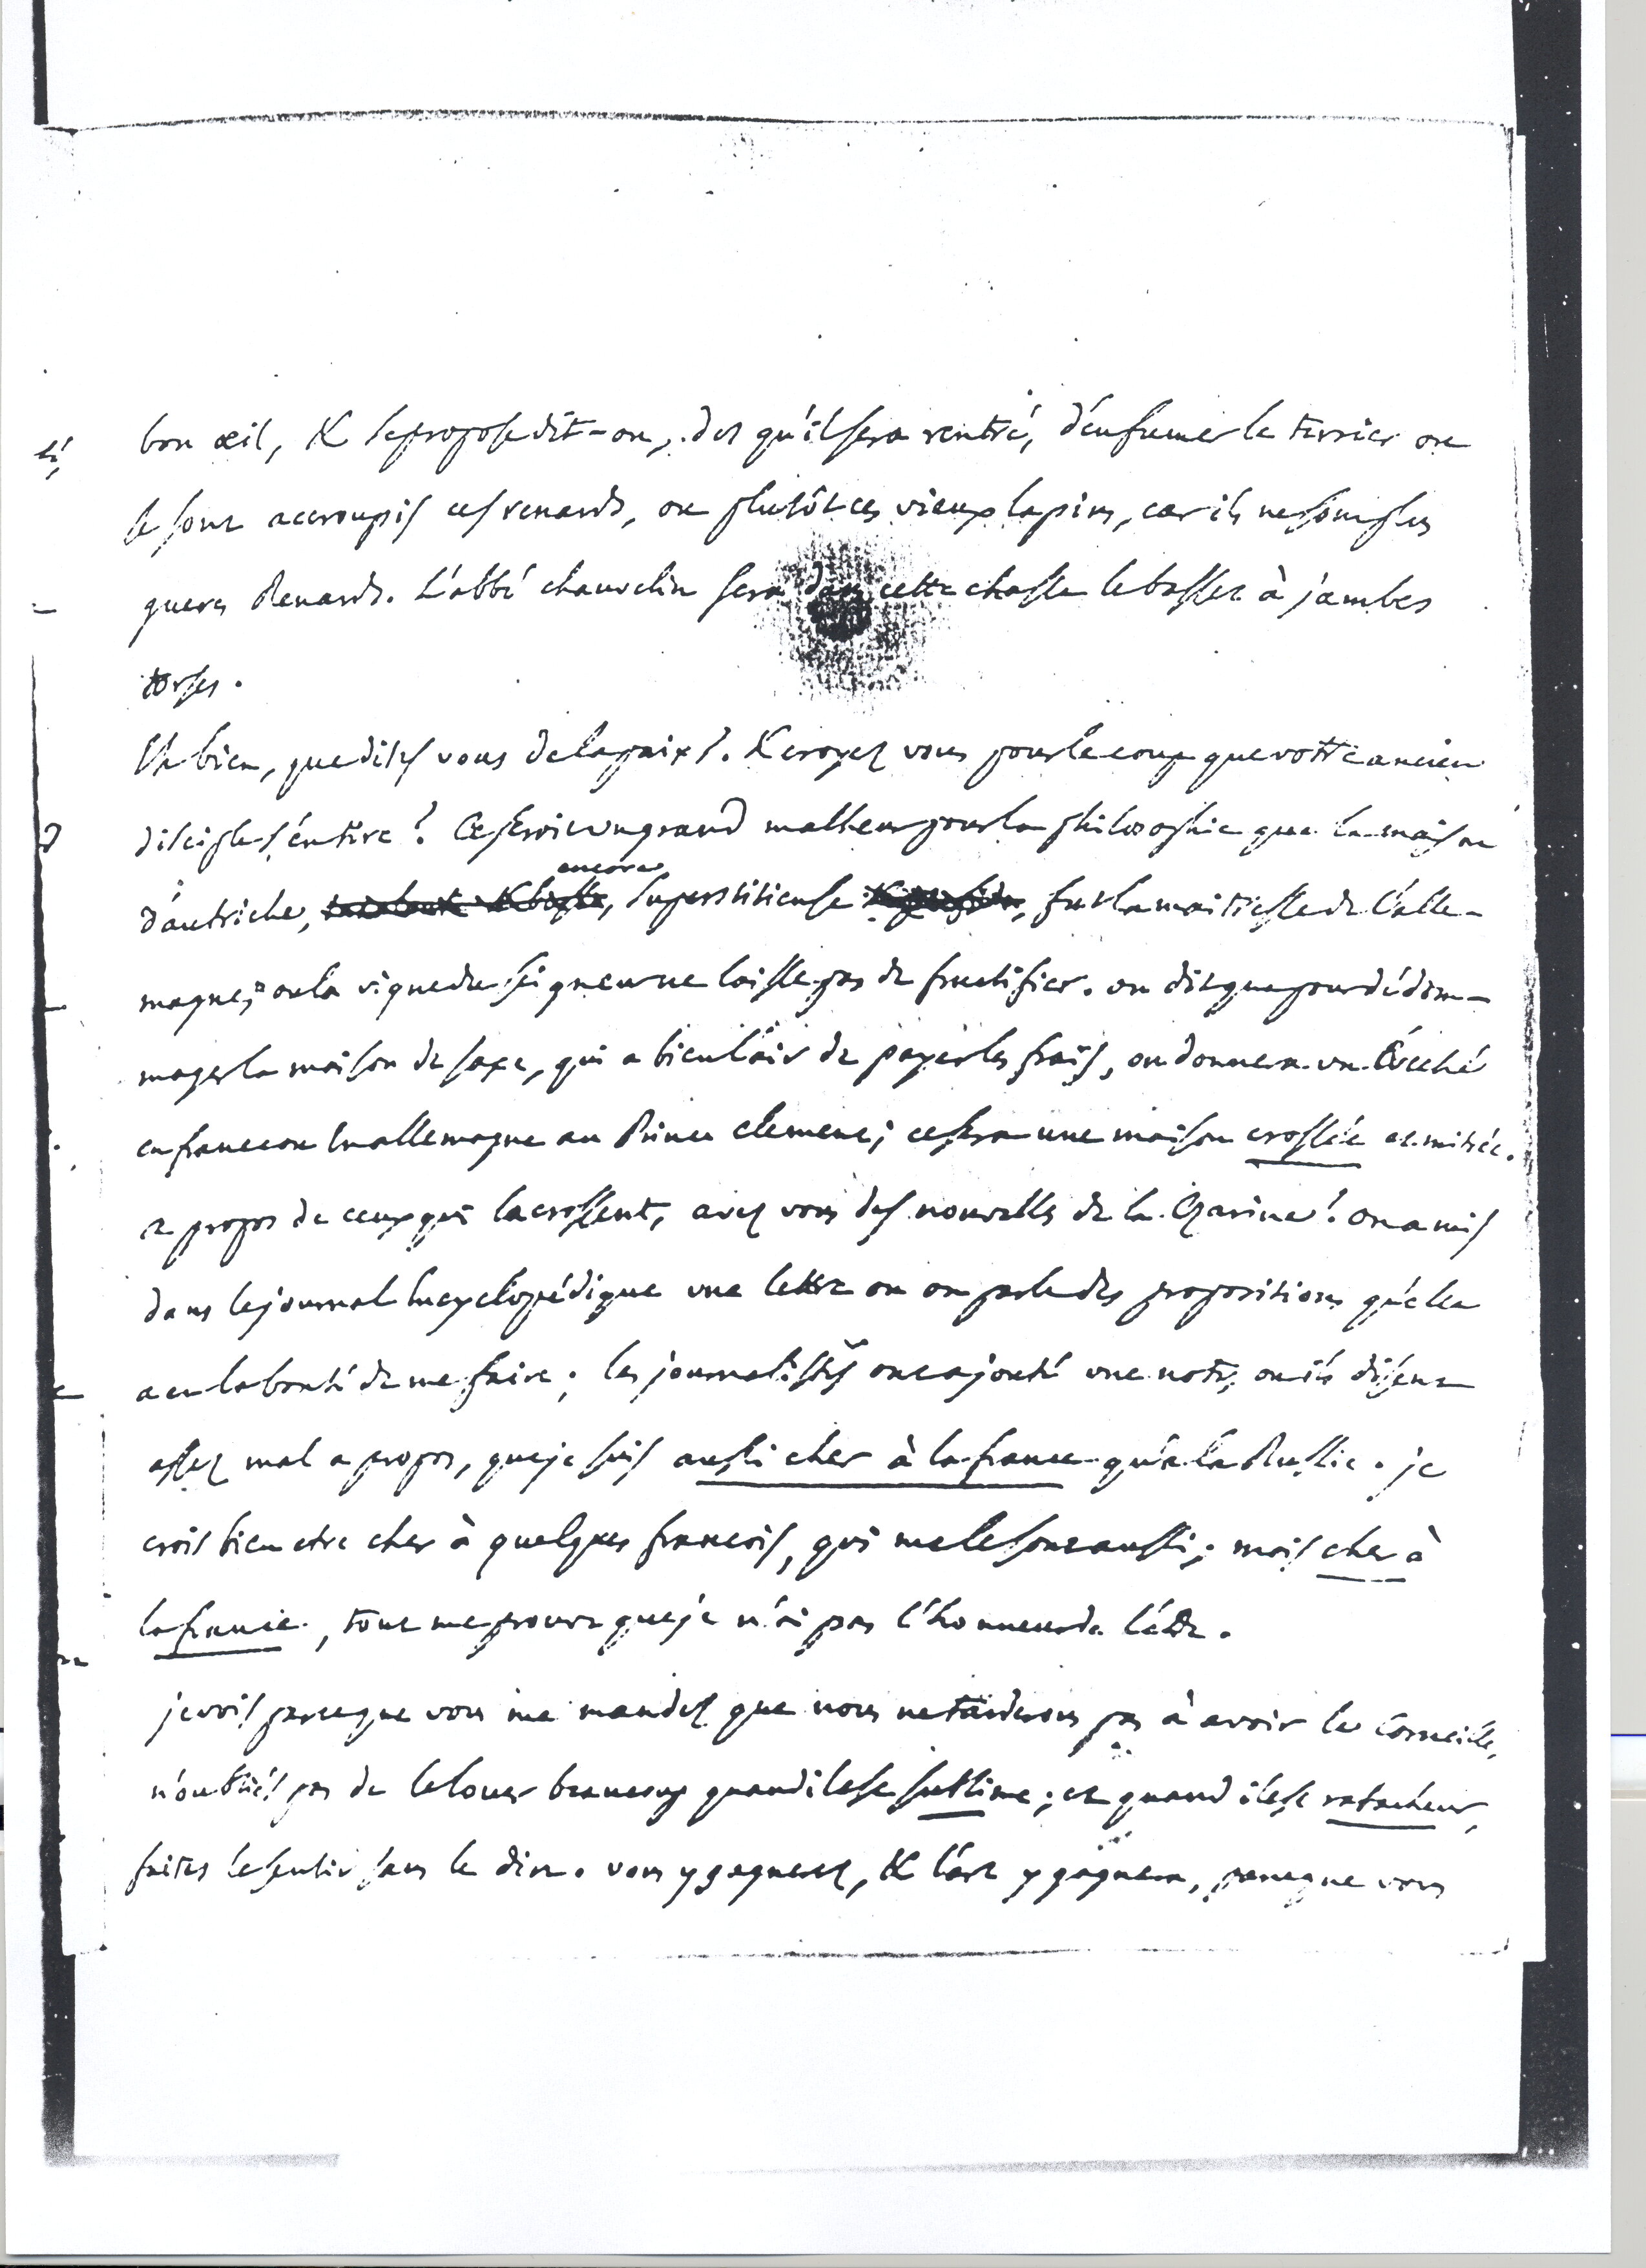 bon œil, & se propose dit-on, des qu'il sera rentré, d'enfumer le terrier ou
se sont accroupis ces renards, ou plutôt ces vieux lapins, car ils ne sont plus
gueres Renards. L'abbé chauvelin sera dans cette chasse le basset à jambes
torses.
Eh bien, que dites vous de la paix? & croyez vous pour le coup que votre ancien
disciple s'en tire? Ce seroit un grand malheur pour la philosophie que la maison
encore
d'autriche, superstitieuse fut la maitresse de l'alle-
magne, ou la vigne du seigneur ne laisse pas de fructifier. on dit que pour dédom-
mager la maison de saxe, qui a bien l'air de payer les frais, on donnera un Evêché
en france ou En allemagne au Prince clement; ce sera une maison crossée et mitrée.
a propos de ceux qui la crossent, avez vous des nouvelles de la Czarine? on a mis
dans le journal Encyclopédique une lettre ou on parle des propositions qu'elle
a eu la bonté de me faire; les journalistes ont ajouté une note, ou ils disent
assez mal a propos, que je suis aussi cher à la france qu'à la Russie. je
crois bien etre cher à quelques francois, qui me le sont aussi; mais cher à
la france, tout me prouve que je n'ai pas l'honneur de l'être.
je vois par ce que vous me mandez que nous ne tarderons pas à avoir le Corneille,
n'oubliés pas de le louer beaucoup quand il est sublime; et quand il est rabacheur,
faites le sentir sans le dire. vous y gagnerez, & l'art y gagnera, parce que vous